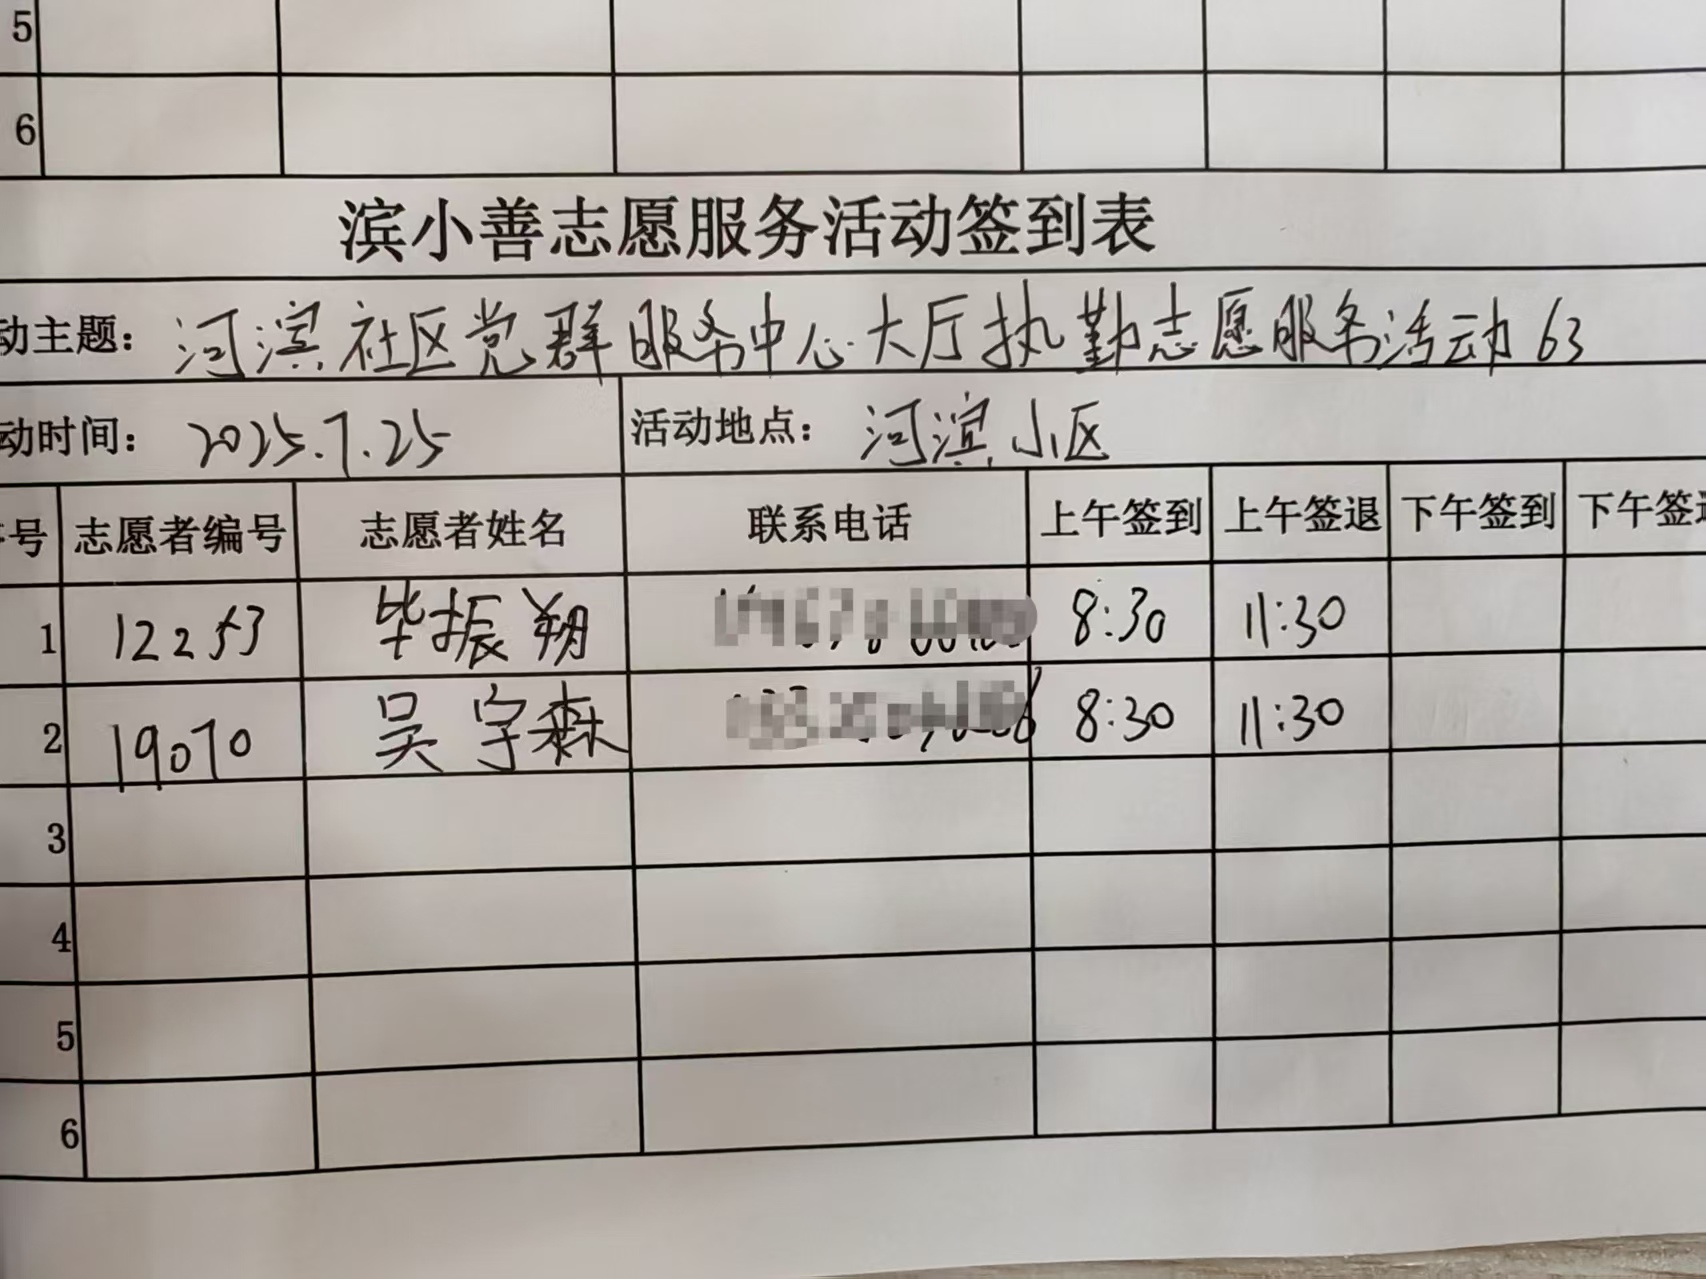 5
6
滨小善志愿服务活动签到表
动主题: 河滨社区党群服务中心大厅执勤志愿服务活动63
动时间: 2025.7.25 活动地点: 河滨小区
号 志愿者编号 志愿者姓名 联系电话 上午签到 上午签退 下午签到 下午签退
1 12253 毕振翔 8:30 11:30
2 19070 吴宇森 8:30 11:30
3
4
5
6